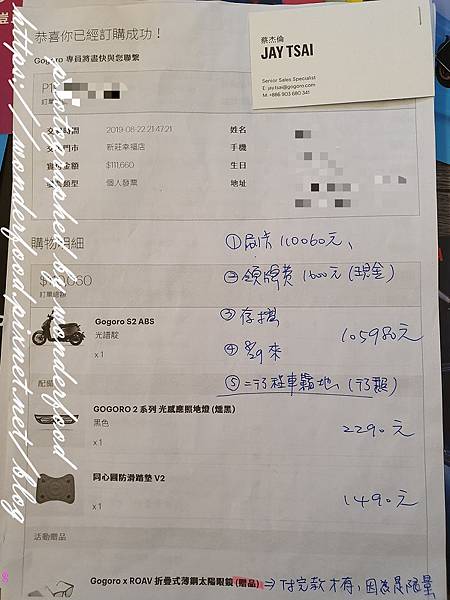 恭喜你已經訂購成功！
Gogoro 專員將盡快與您聯繫
蔡杰倫
JAY TSAI
Senior Sales Specialist
E: jay.tsai@gogoro.com
M: +886 903 680 341
P1
訂單
交易時間 2019-08-22 21:47:21 姓名
交易門市 新莊幸福店 手機
$111,660 生日
發票類型 個人發票 地址
購物明細
①刷卡 110060元、
②領牌費 1600元 (現金)
訂單總額
Gogoro S2 ABS
光譜靛
x 1
③存摺
105980元
④ 8/29 來
配備
GOGORO 2 系列 光感應照地燈 (燻黑)
黑色
x 1
2290元
同心圓防滑踏墊 V2
x 1
1490元
活動贈品
Gogoro x ROAV 折疊式薄鋼太陽眼鏡 (贈品) ⇒ 付完款才有，因為是限量
https://wonderfood.pixnet.net/blog
photographed by wonderfood